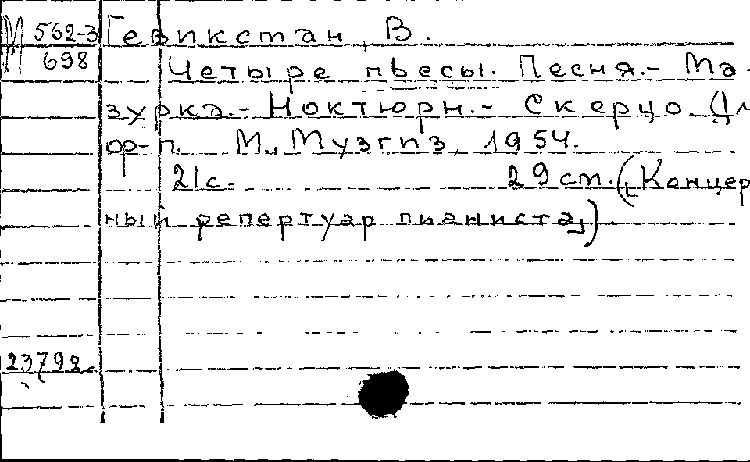 М 562-3 Гевикстан, В.
698 Четыре пьесы. Песня.- Ма-
зурка.- Ноктюрн.- Скерцо. (Дл
ф-п. М., Музгиз, 1954.
21с. 29 см. („Концер
ный репертуар пианиста„)
23792.